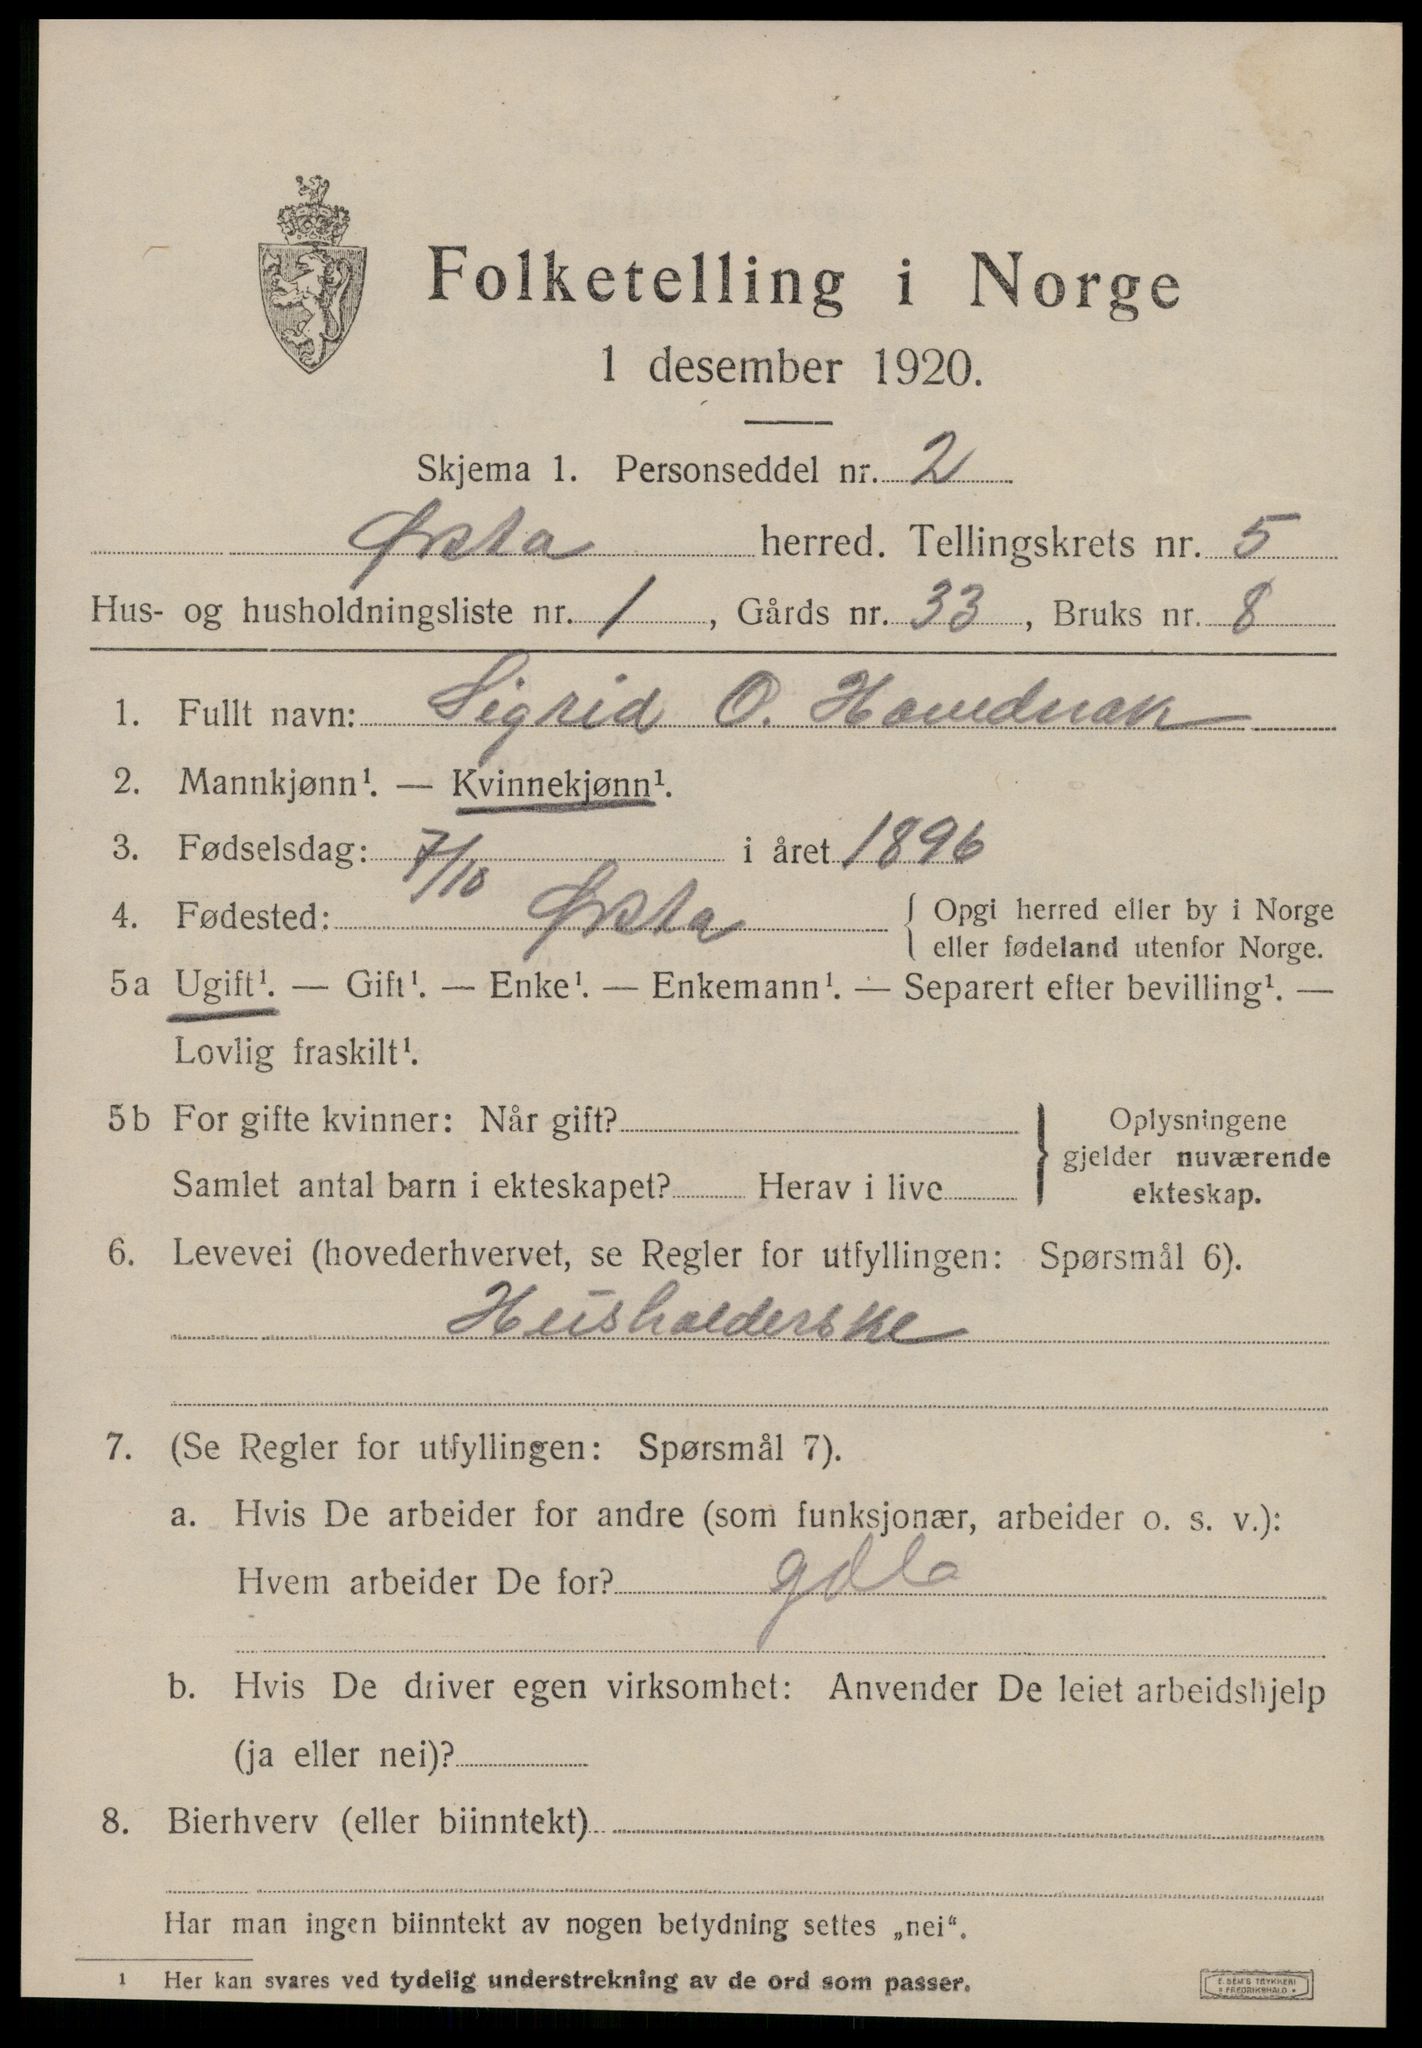 Folketelling i Norge
1 desember 1920.
Skjema 1. Personseddel nr. 2
Ørsta herred. Tellingskrets nr. 5
Hus- og husholdningsliste nr. 1, Gårds nr. 33, Bruks nr. 8
1. Fullt navn: Sigrid O. Hovdenak
2. Mannkjønn¹. — Kvinnekjønn¹.
3. Fødselsdag: 7/10 i året 1896
4. Fødested: Ørsta { Opgi herred eller by i Norge
eller fødeland utenfor Norge.
5a Ugift¹. — Gift¹. — Enke¹. — Enkemann¹. — Separert efter bevilling¹. —
Lovlig fraskilt¹.
5b For gifte kvinner: Når gift? } Oplysningene
gjelder nuværende
Samlet antal barn i ekteskapet? Herav i live ekteskap.
6. Levevei (hovederhvervet, se Regler for utfyllingen: Spørsmål 6).
Husholderske
7. (Se Regler for utfyllingen: Spørsmål 7).
a. Hvis De arbeider for andre (som funksjonær, arbeider o. s. v.):
Hvem arbeider De for?
b. Hvis De driver egen virksomhet: Anvender De leiet arbeidshjelp
(ja eller nei)?
8. Bierhverv (eller biinntekt)
Har man ingen biinntekt av nogen betydning settes „nei“.
1 Her kan svares ved tydelig understrekning av de ord som passer.
E. SEM'S TRYKKERI
FREDRIKSHALD